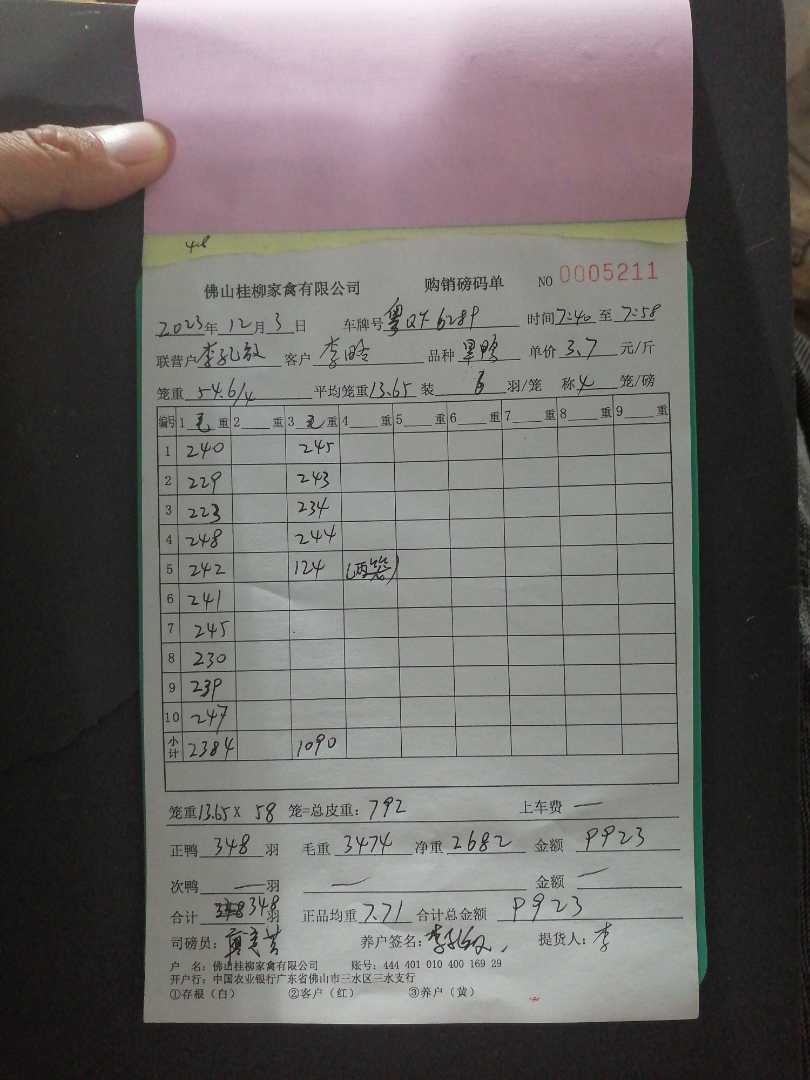 佛山桂柳家禽有限公司 购销磅码单 NO 0005211
2023年12月3日 车牌号 粤QY6289 时间7:40至7:58
联营户李孔敏 客户 李晗 品种 黑鸭 单价 3.7 元/斤
笼重 54.6/4 平均笼重13.65 装 6 羽/笼 称 4 笼/磅
编号 1 毛 重 2 重 3 毛 重 4 重 5 重 6 重 7 重 8 重 9 重
1 240 245
2 229 243
3 223 234
4 248 244
5 242 124 (两笼)
6 241
7 245
8 230
9 239
10 247
小计 2384 1090
笼重13.65X 58 笼=总皮重: 792 上车费 —
正鸭 348 羽 毛重 3474 净重 2682 金额 9923
次鸭 — 羽 — 金额 —
合计 348 羽 正品均重 7.71 合计总金额 9923
司磅员: 养户签名: 李孔敏 提货人: 李
户 名: 佛山桂柳家禽有限公司 账号: 444 401 010 400 169 29
开户行: 中国农业银行广东省佛山市三水区三水支行
①存根(白) ②客户(红) ③养户(黄)